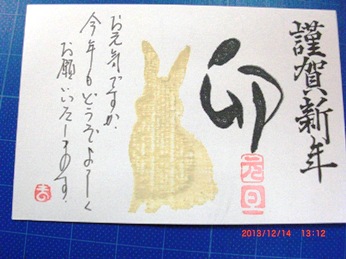 謹賀新年
卯
元旦
お元気ですか.
今年もどうぞよろしく
お願いいたします.
2013/12/14 13:12